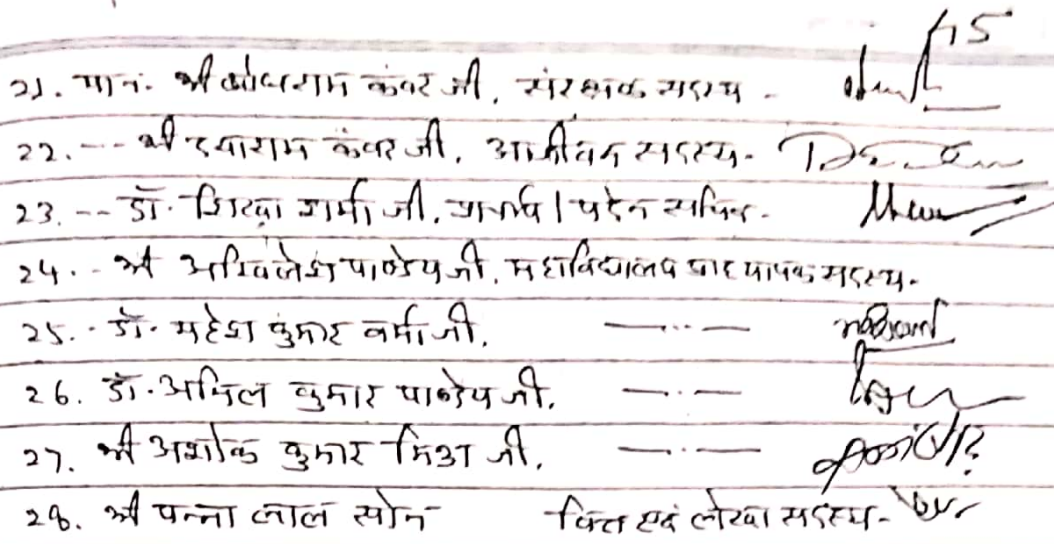 21. मान. श्री बोधराम कंवर जी, संरक्षक सदस्य -
22. -- श्री दयाराम कंवर जी, आजीवन सदस्य -
23. -- डॉ. शिखा शर्मा जी, प्राचार्य / पदेन सचिव -
24. - श्री अखिलेश पाण्डेय जी, महाविद्यालय प्राध्यापक सदस्य -
25. - डॉ. महेश कुमार वर्मा जी, —..—
26. डॉ. अनिल कुमार पाण्डेय जी, —.—
27. श्री अशोक कुमार मिश्रा जी, —.—
28. श्री पन्ना लाल सोन वित्त एवं लेखा सदस्य -